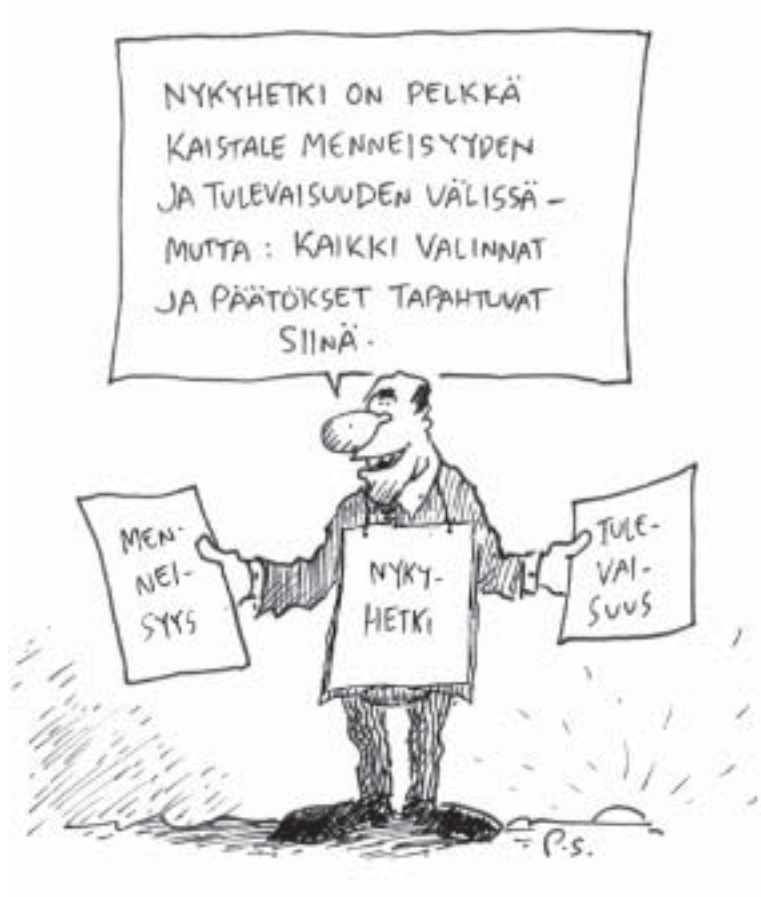 NYKYHETKI ON PELKKÄ
KAISTALE MENNEISYYDEN
JA TULEVAISUUDEN VÄLISSÄ –
MUTTA : KAIKKI VALINNAT
JA PÄÄTÖKSET TAPAHTUVAT
SIINÄ.
MEN-
NEI-
SYYS
NYKY-
HETKI
TULE-
VAI-
SUUS
P.S.